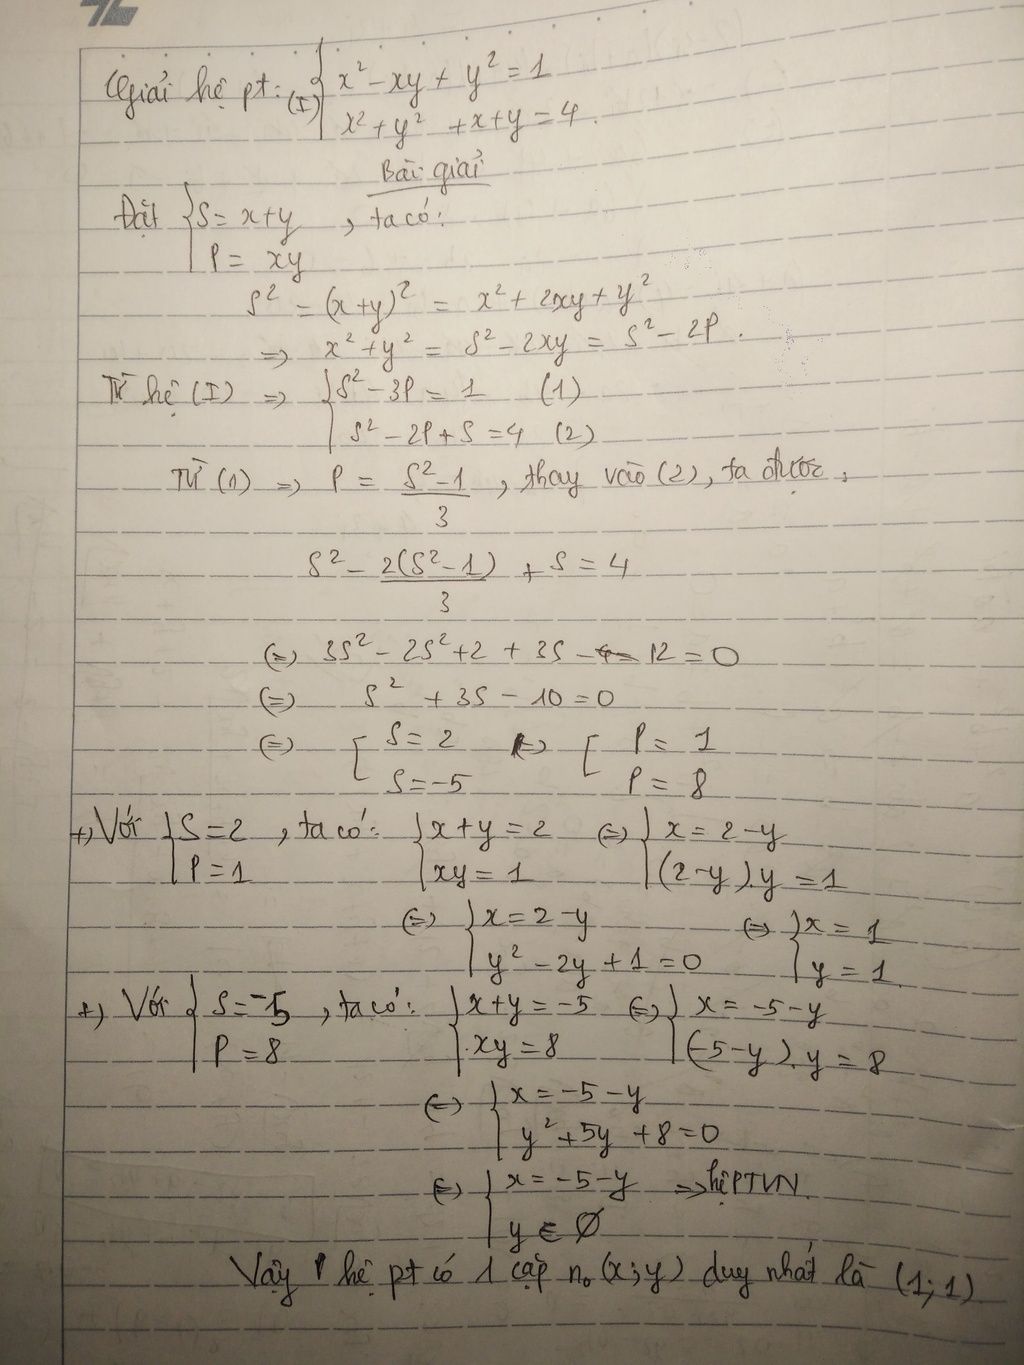 Giải hệ pt: (I) { x² - xy + y² = 1
x² + y² + x + y = 4.
Bài giải
Đặt { S = x+y , ta có:
P = xy
S² = (x+y)² = x² + 2xy + y²
=> x² + y² = S² - 2xy = S² - 2P.
Từ hệ (I) => { S² - 3P = 1 (1)
S² - 2P + S = 4 (2)
Từ (1) => P = (S² - 1)/3 , thay vào (2), ta được,
S² - 2(S² - 1)/3 + S = 4
(=) 3S² - 2S² + 2 + 3S - 12 = 0
(=) S² + 3S - 10 = 0
(=) [ S = 2 (=) [ P = 1
S = -5 P = 8
+, Với { S = 2 , ta có: { x + y = 2 (=) { x = 2 - y
P = 1 xy = 1 (2-y).y = 1
(=) { x = 2 - y (=) { x = 1
y² - 2y + 1 = 0 y = 1.
+, Với { S = -5 , ta có: { x + y = -5 (=) { x = -5 - y
P = 8 xy = 8 (-5-y).y = 8
(=) { x = -5 - y
y² + 5y + 8 = 0
(=) { x = -5 - y => hệ PTVN.
y ∈ ∅
Vậy hệ pt có 1 cặp n₀ (x; y) duy nhất là (1; 1)